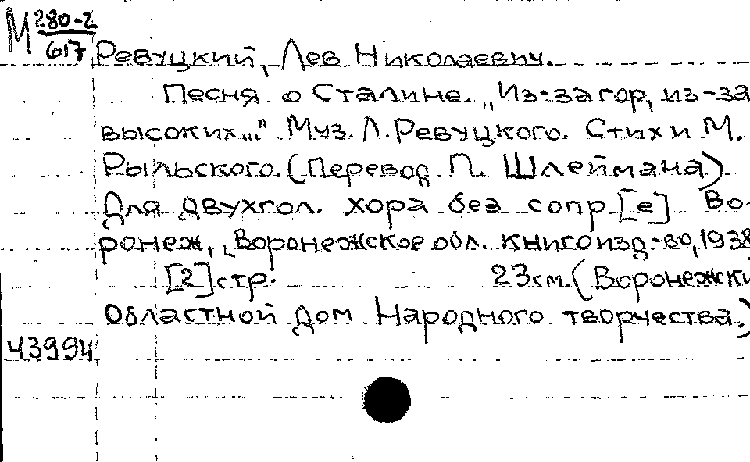 М 280-2
617
Ревуцкий, Лев Николаевич.
Песня о Сталине. „Из-за гор, из-за
высоких..." Муз. Л. Ревуцкого. Стихи М.
Рыльского. (Перевод П. Шлеймана)
Для двухгол. хора без сопр[е] Во-
ронеж, Воронежское обл. книгоизд-во, 1938
[2] стр. 23 см. (Воронежски
Областной Дом Народного творчества.)
43994